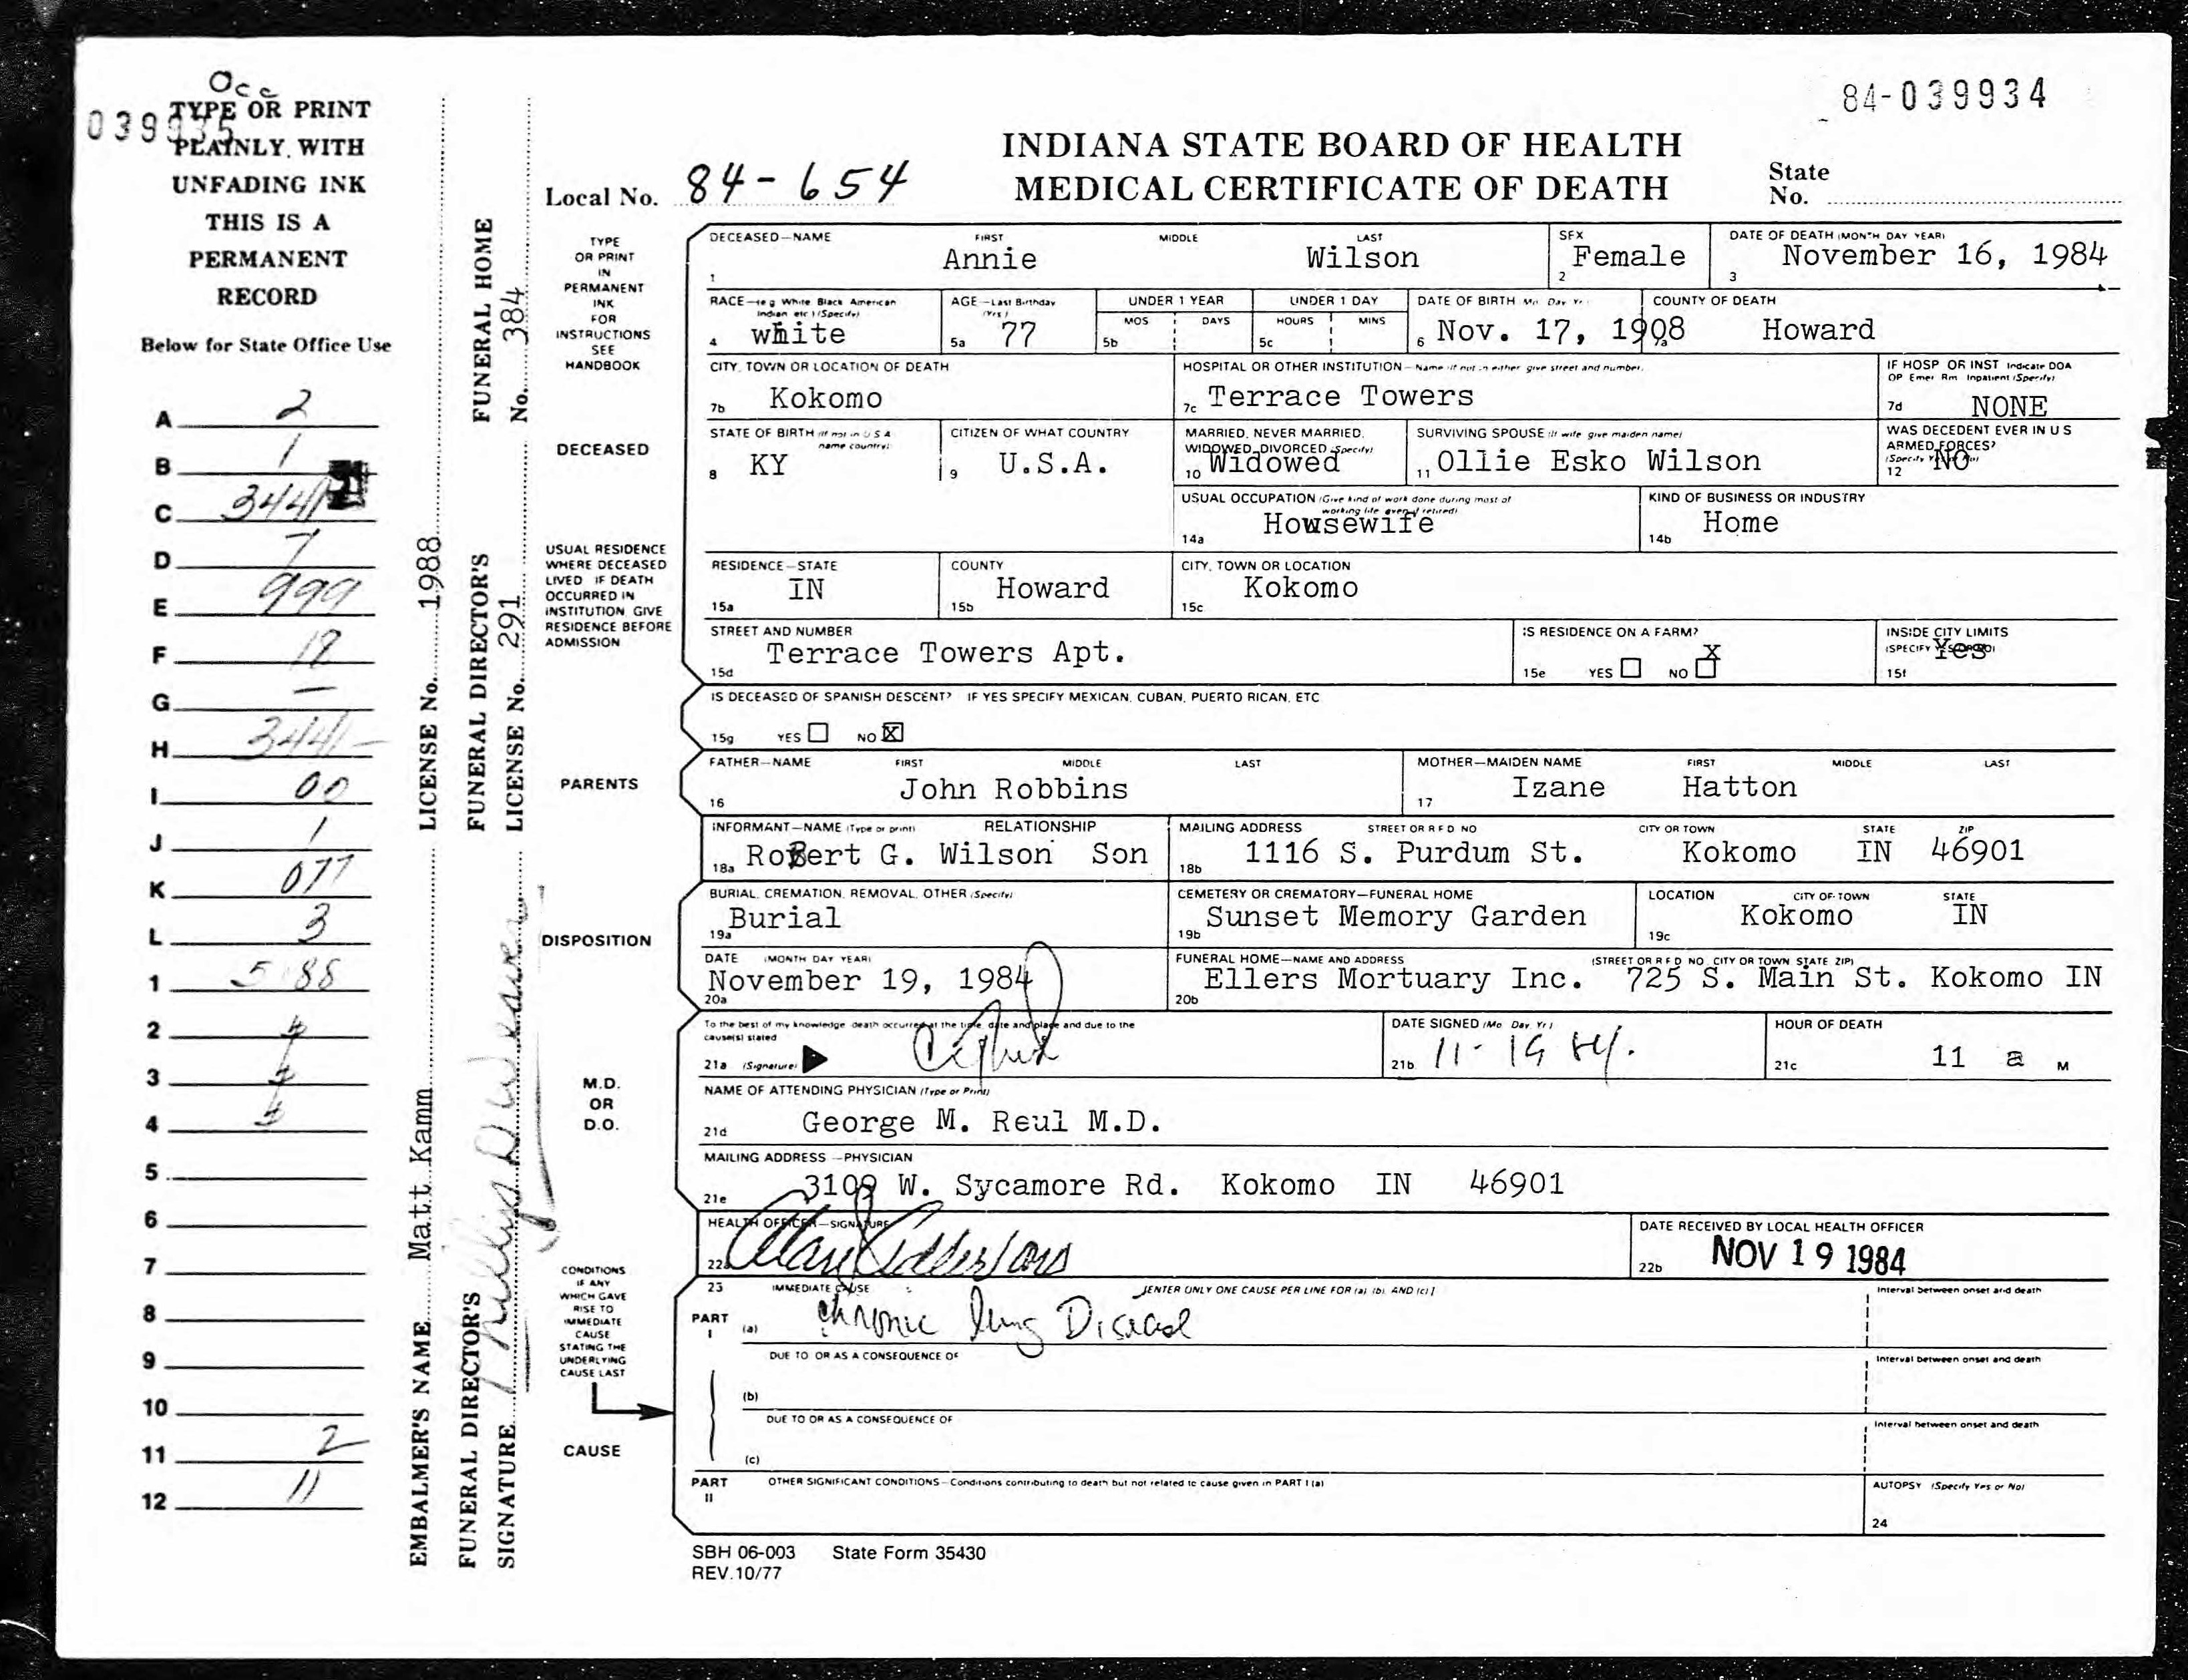 Occ
039935
TYPE OR PRINT
PLAINLY WITH
UNFADING INK
THIS IS A
PERMANENT
RECORD
Below for State Office Use
A 2
B 1
C 3441
D 7
E 999
F 12
G —
H 3441-
I 00
J 1
K 077
L 3
1 5 88
2
3
4
5
6
7
8
9
10
11 2
12 11
EMBALMER'S NAME Matt Kamm LICENSE No. 1988
FUNERAL DIRECTOR'S SIGNATURE
FUNERAL DIRECTOR'S LICENSE No. 291
FUNERAL HOME No. 384
84-039934
INDIANA STATE BOARD OF HEALTH
MEDICAL CERTIFICATE OF DEATH
Local No. 84-654
State No.
TYPE
OR PRINT
IN
PERMANENT
INK
FOR
INSTRUCTIONS
SEE
HANDBOOK
DECEASED—NAME FIRST MIDDLE LAST
1 Annie Wilson
SEX
2 Female
DATE OF DEATH (MONTH DAY YEAR)
3 November 16, 1984
RACE—(e g White Black American Indian etc ) (Specify)
4 white
AGE—Last Birthday (Yrs )
5a 77
UNDER 1 YEAR
MOS DAYS
5b
UNDER 1 DAY
HOURS MINS
5c
DATE OF BIRTH Mo Day Yr
6 Nov. 17, 1908
COUNTY OF DEATH
7a Howard
CITY, TOWN OR LOCATION OF DEATH
7b Kokomo
HOSPITAL OR OTHER INSTITUTION—Name (If not in either give street and number)
7c Terrace Towers
IF HOSP OR INST Indicate DOA
OP Emer Rm Inpatient (Specify)
7d NONE
DECEASED
STATE OF BIRTH (If not in U S A name country)
8 KY
CITIZEN OF WHAT COUNTRY
9 U.S.A.
MARRIED, NEVER MARRIED,
WIDOWED, DIVORCED (Specify)
10 Widowed
SURVIVING SPOUSE (If wife give maiden name)
11 Ollie Esko Wilson
WAS DECEDENT EVER IN U S
ARMED FORCES?
(Specify Yes or No)
12 NO
USUAL OCCUPATION (Give kind of work done during most of
working life even if retired)
14a Housewife
KIND OF BUSINESS OR INDUSTRY
14b Home
USUAL RESIDENCE
WHERE DECEASED
LIVED IF DEATH
OCCURRED IN
INSTITUTION, GIVE
RESIDENCE BEFORE
ADMISSION
RESIDENCE—STATE
15a IN
COUNTY
15b Howard
CITY, TOWN OR LOCATION
15c Kokomo
STREET AND NUMBER
15d Terrace Towers Apt.
IS RESIDENCE ON A FARM?
15e YES NO X
INSIDE CITY LIMITS
(SPECIFY YES OR NO)
15f Yes
IS DECEASED OF SPANISH DESCENT? IF YES SPECIFY MEXICAN, CUBAN, PUERTO RICAN, ETC
15g YES NO X
PARENTS
FATHER—NAME FIRST MIDDLE LAST
16 John Robbins
MOTHER—MAIDEN NAME FIRST MIDDLE LAST
17 Izane Hatton
INFORMANT—NAME (Type or print) RELATIONSHIP
18a Robert G. Wilson Son
MAILING ADDRESS STREET OR R F D NO CITY OR TOWN STATE ZIP
18b 1116 S. Purdum St. Kokomo IN 46901
DISPOSITION
BURIAL, CREMATION, REMOVAL, OTHER (Specify)
19a Burial
CEMETERY OR CREMATORY—FUNERAL HOME
19b Sunset Memory Garden
LOCATION CITY OF-TOWN STATE
19c Kokomo IN
DATE (MONTH DAY YEAR)
20a November 19, 1984
FUNERAL HOME—NAME AND ADDRESS (STREET OR R F D NO CITY OR TOWN STATE ZIP)
20b Ellers Mortuary Inc. 725 S. Main St. Kokomo IN
M.D.
OR
D.O.
To the best of my knowledge death occurred at the time, date and place and due to the
cause(s) stated
21a (Signature)
DATE SIGNED (Mo Day Yr)
21b 11-19 84.
HOUR OF DEATH
21c 11 a M
NAME OF ATTENDING PHYSICIAN (Type or Print)
21d George M. Reul M.D.
MAILING ADDRESS—PHYSICIAN
21e 3109 W. Sycamore Rd. Kokomo IN 46901
HEALTH OFFICER—SIGNATURE
22a
DATE RECEIVED BY LOCAL HEALTH OFFICER
22b NOV 19 1984
CONDITIONS
IF ANY
WHICH GAVE
RISE TO
IMMEDIATE
CAUSE
STATING THE
UNDERLYING
CAUSE LAST
CAUSE
23 IMMEDIATE CAUSE [ENTER ONLY ONE CAUSE PER LINE FOR (a) (b) AND (c)]
Interval between onset and death
PART I (a) Chronic lung Disease
DUE TO OR AS A CONSEQUENCE OF
Interval between onset and death
(b)
DUE TO OR AS A CONSEQUENCE OF
Interval between onset and death
(c)
PART II OTHER SIGNIFICANT CONDITIONS—Conditions contributing to death but not related to cause given in PART I (a)
AUTOPSY (Specify Yes or No)
24
SBH 06-003 State Form 35430
REV.10/77